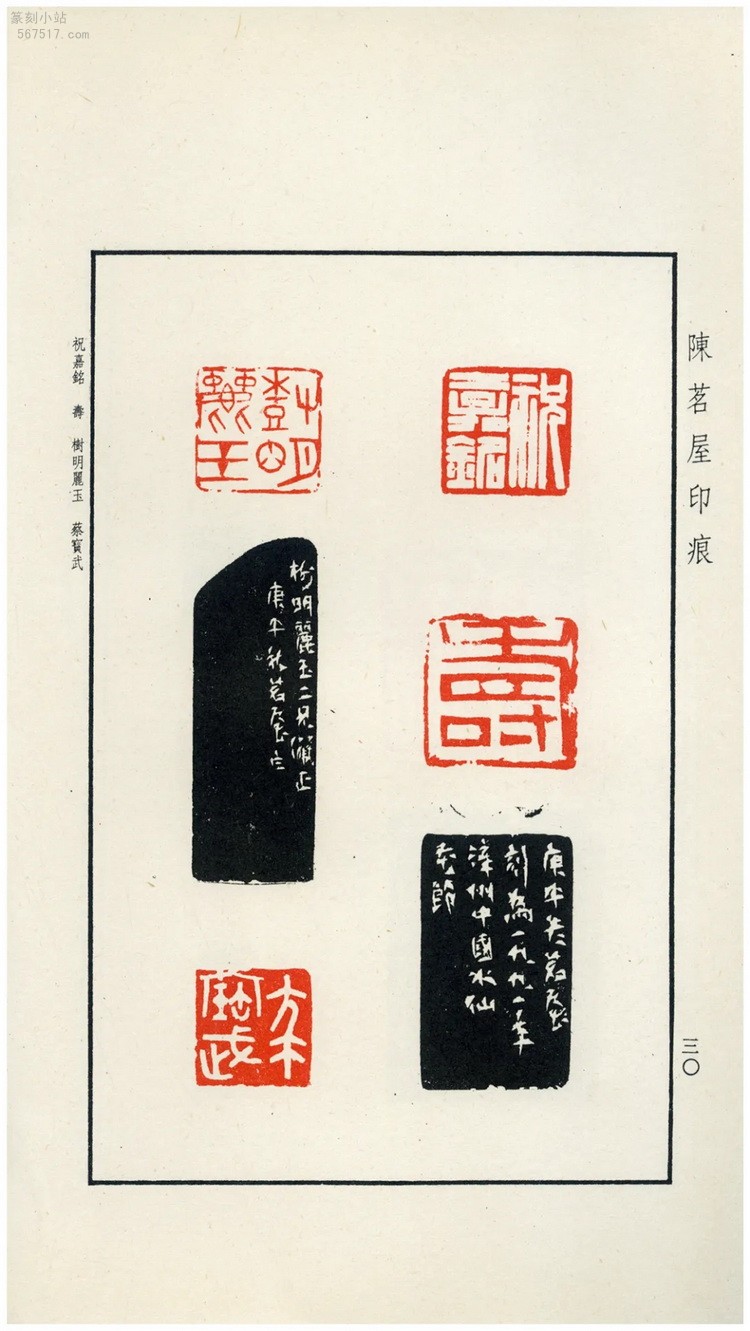 篆刻小站
567517.com
陳茗屋印痕
三〇
祝嘉銘
壽
庚午冬茗屋
刻為一九九一年
漳州中國水仙
花節
樹明麗玉
樹明麗玉二兄儷正
庚午秋茗屋立
蔡寶武
祝嘉銘 壽 樹明麗玉 蔡寶武